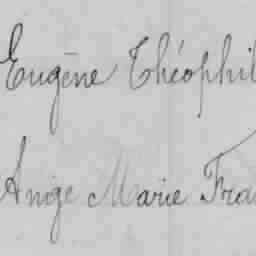 Eugène Théophil
Ange Marie Fra